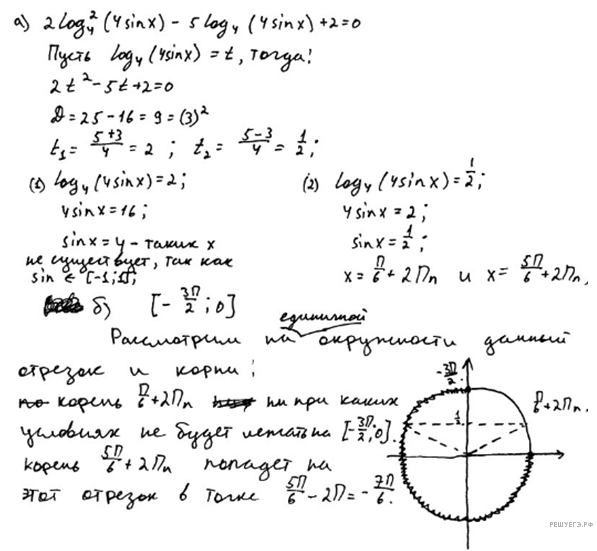 а) 2log₄²(4sinx) - 5log₄(4sinx)+2=0
Пусть log₄(4sinx) = t, тогда:
2t²-5t+2=0
D=25-16=9=(3)²
t₁= (5+3)/4 = 2 ; t₂= (5-3)/4 = 1/2;
(1) log₄(4sinx)=2;
4sinx=16;
sinx=4 - таких x
не существует, так как
sin ∈ [-1;1];
(2) log₄(4sinx)=1/2;
4sinx=2;
sinx=1/2;
x= П/6 + 2Пn и x= 5П/6 + 2Пn,
б) [-3П/2; 0]
единичной
Рассмотрим на окружности данный
отрезок и корни:
корень П/6+2Пn ни при каких
условиях не будет лежать на [-3П/2;0].
корень 5П/6 + 2Пn попадет на
этот отрезок в точке 5П/6 - 2П= -7П/6.
-3П/2
1/2
П/6+2Пn.
РЕШУЕГЭ.РФ